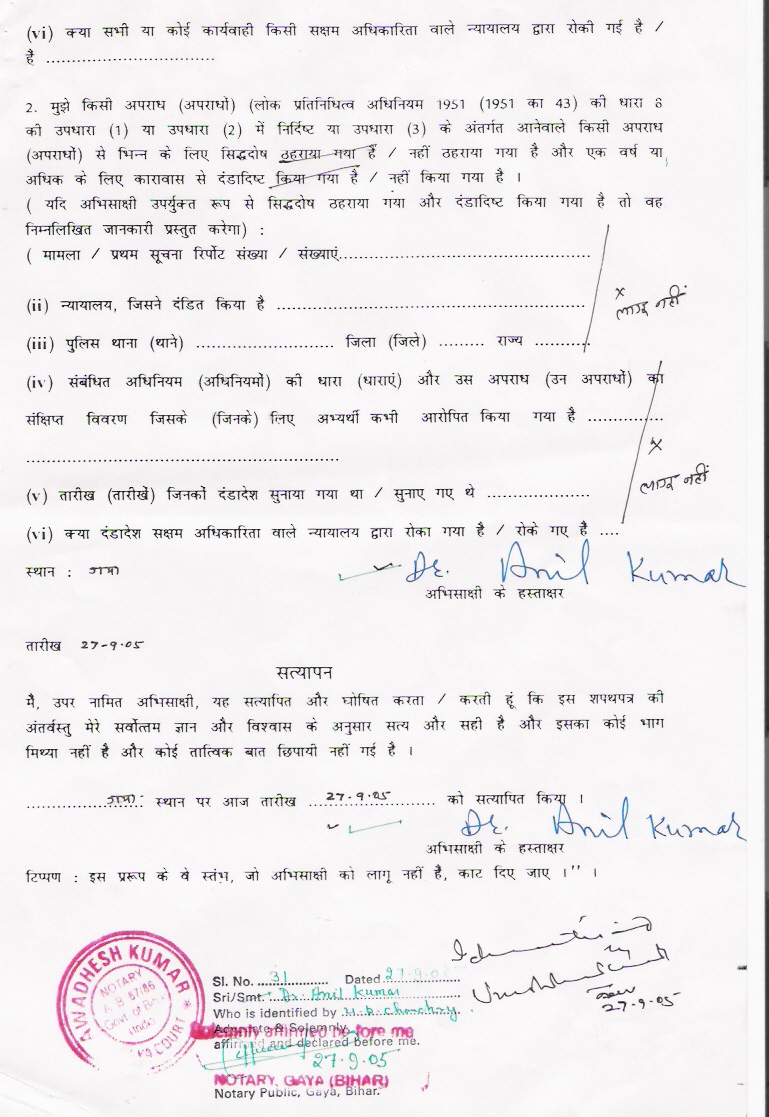 (vi) क्या सभी या कोई कार्यवाही किसी सक्षम अधिकारिता वाले न्यायालय द्वारा रोकी गई है /
है ..................................
2. मुझे किसी अपराध (अपराधों) (लोक प्रतिनिधित्व अधिनियम 1951 (1951 का 43) की धारा 8
की उपधारा (1) या उपधारा (2) में निर्दिष्ट या उपधारा (3) के अंतर्गत आनेवाले किसी अपराध
(अपराधों) से भिन्न के लिए सिद्धदोष ठहराया गया है / नहीं ठहराया गया है और एक वर्ष या
अधिक के लिए कारावास से दंडादिष्ट किया गया है / नहीं किया गया है ।
( यदि अभिसाक्षी उपर्युक्त रूप से सिद्धदोष ठहराया गया और दंडादिष्ट किया गया है तो वह
निम्नलिखित जानकारी प्रस्तुत करेगा) :
( मामला / प्रथम सूचना रिर्पोट संख्या / संख्याएं...............................................
(ii) न्यायालय, जिसने दंडित किया है ..........................................................
× लागू नहीं
(iii) पुलिस थाना (थाने) .......................... जिला (जिले) ......... राज्य ...........
(iv) संबंधित अधिनियम (अधिनियमों) की धारा (धाराएं) और उस अपराध (उन अपराधों) का
संक्षिप्त विवरण जिसके (जिनके) लिए अभ्यर्थी कभी आरोपित किया गया है ..............
...........................................................
× लागू नहीं
(v) तारीख (तारीखें) जिनकों दंडादेश सुनाया गया था / सुनाए गए थे ....................
(vi) क्या दंडादेश सक्षम अधिकारिता वाले न्यायालय द्वारा रोका गया है / रोके गए है ....
स्थान : गया
Dr. Anil Kumar
अभिसाक्षी के हस्ताक्षर
तारीख 27-9-05
सत्यापन
मै, उपर नामित अभिसाक्षी, यह सत्यापित और घोषित करता / करती हूं कि इस शपथपत्र की
अंतर्वस्तु मेरे सर्वोत्तम ज्ञान और विश्वास के अनुसार सत्य और सही है और इसका कोई भाग
मिथ्या नहीं है और कोई तात्विक बात छिपायी नहीं गई है ।
..................गया: स्थान पर आज तारीख ...27-9-05............ को सत्यापित किया ।
Dr. Anil Kumar
अभिसाक्षी के हस्ताक्षर
टिप्पण : इस प्ररूप के वे स्तंभ, जो अभिसाक्षी को लागू नहीं है, काट दिए जाए ।'' ।
27-9-05
AWADHESH KUMAR
NOTARY
Govt. of Bihar
COURT
Sl. No. 31 Dated 27-9-05
Sri/Smt. Dr. Anil Kumar
Who is identified by
Advocate & Solemnly
Solemnly affirmed before me
affirmed and declared before me.
27-9-05
NOTARY, GAYA (BIHAR)
Notary Public, Gaya, Bihar.